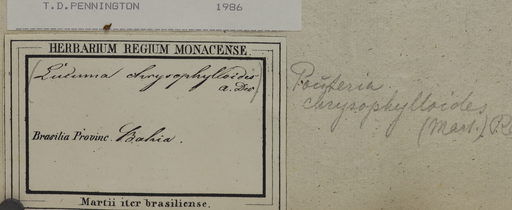 T.D.PENNINGTON 1986
HERBARIUM REGIUM MONACENSE.
(Lucuma chrysophylloides
A. Dec)
Brasilia Provinc. Bahia.
Martii iter brasiliense.
Pouteria
chrysophylloides
(Mart.) R